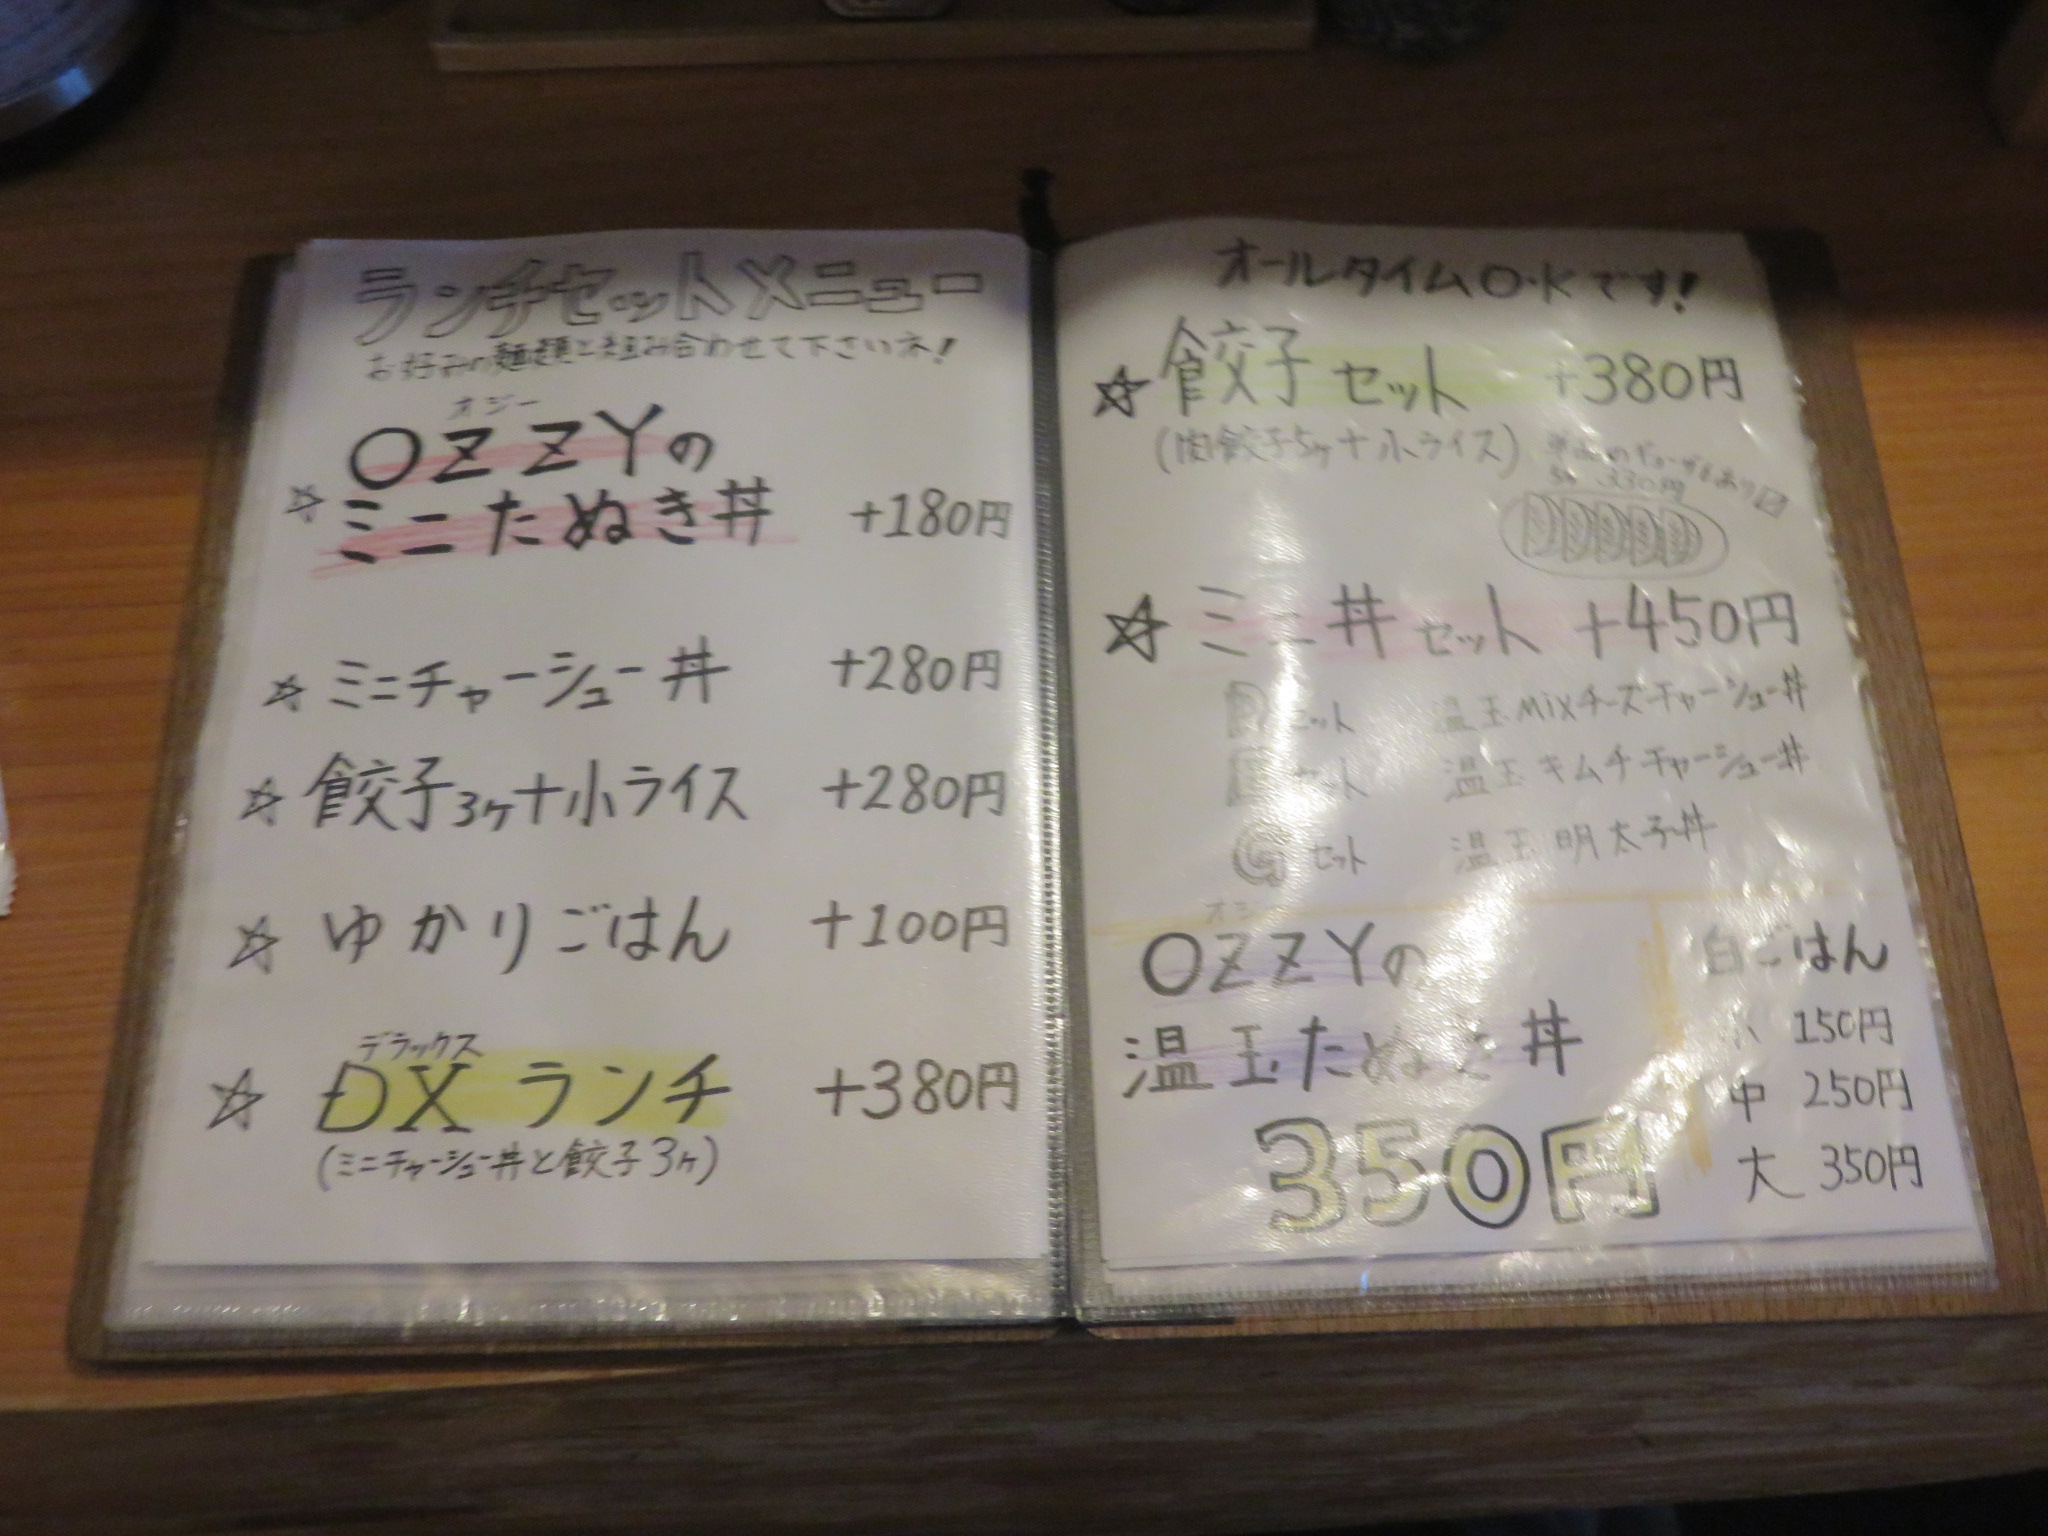 ランチセットメニュー
お好みの麺類と組み合わせて下さいネ!
オジー
OZZYの
☆ ミニたぬき丼 +180円
☆ ミニチャーシュー丼 +280円
☆ 餃子3ヶ+小ライス +280円
☆ ゆかりごはん +100円
デラックス
☆ DX ランチ +380円
(ミニチャーシュー丼と餃子3ヶ)
オールタイムO・Kです!
☆ 餃子セット +380円
(肉餃子5ヶ+小ライス)
5ヶ 330円
☆ ミニ丼セット +450円
セット 温玉MIXチーズチャーシュー丼
セット 温玉キムチチャーシュー丼
Gセット 温玉明太子丼
オジー
OZZYの
温玉たぬき丼
350円
白ごはん
小 150円
中 250円
大 350円